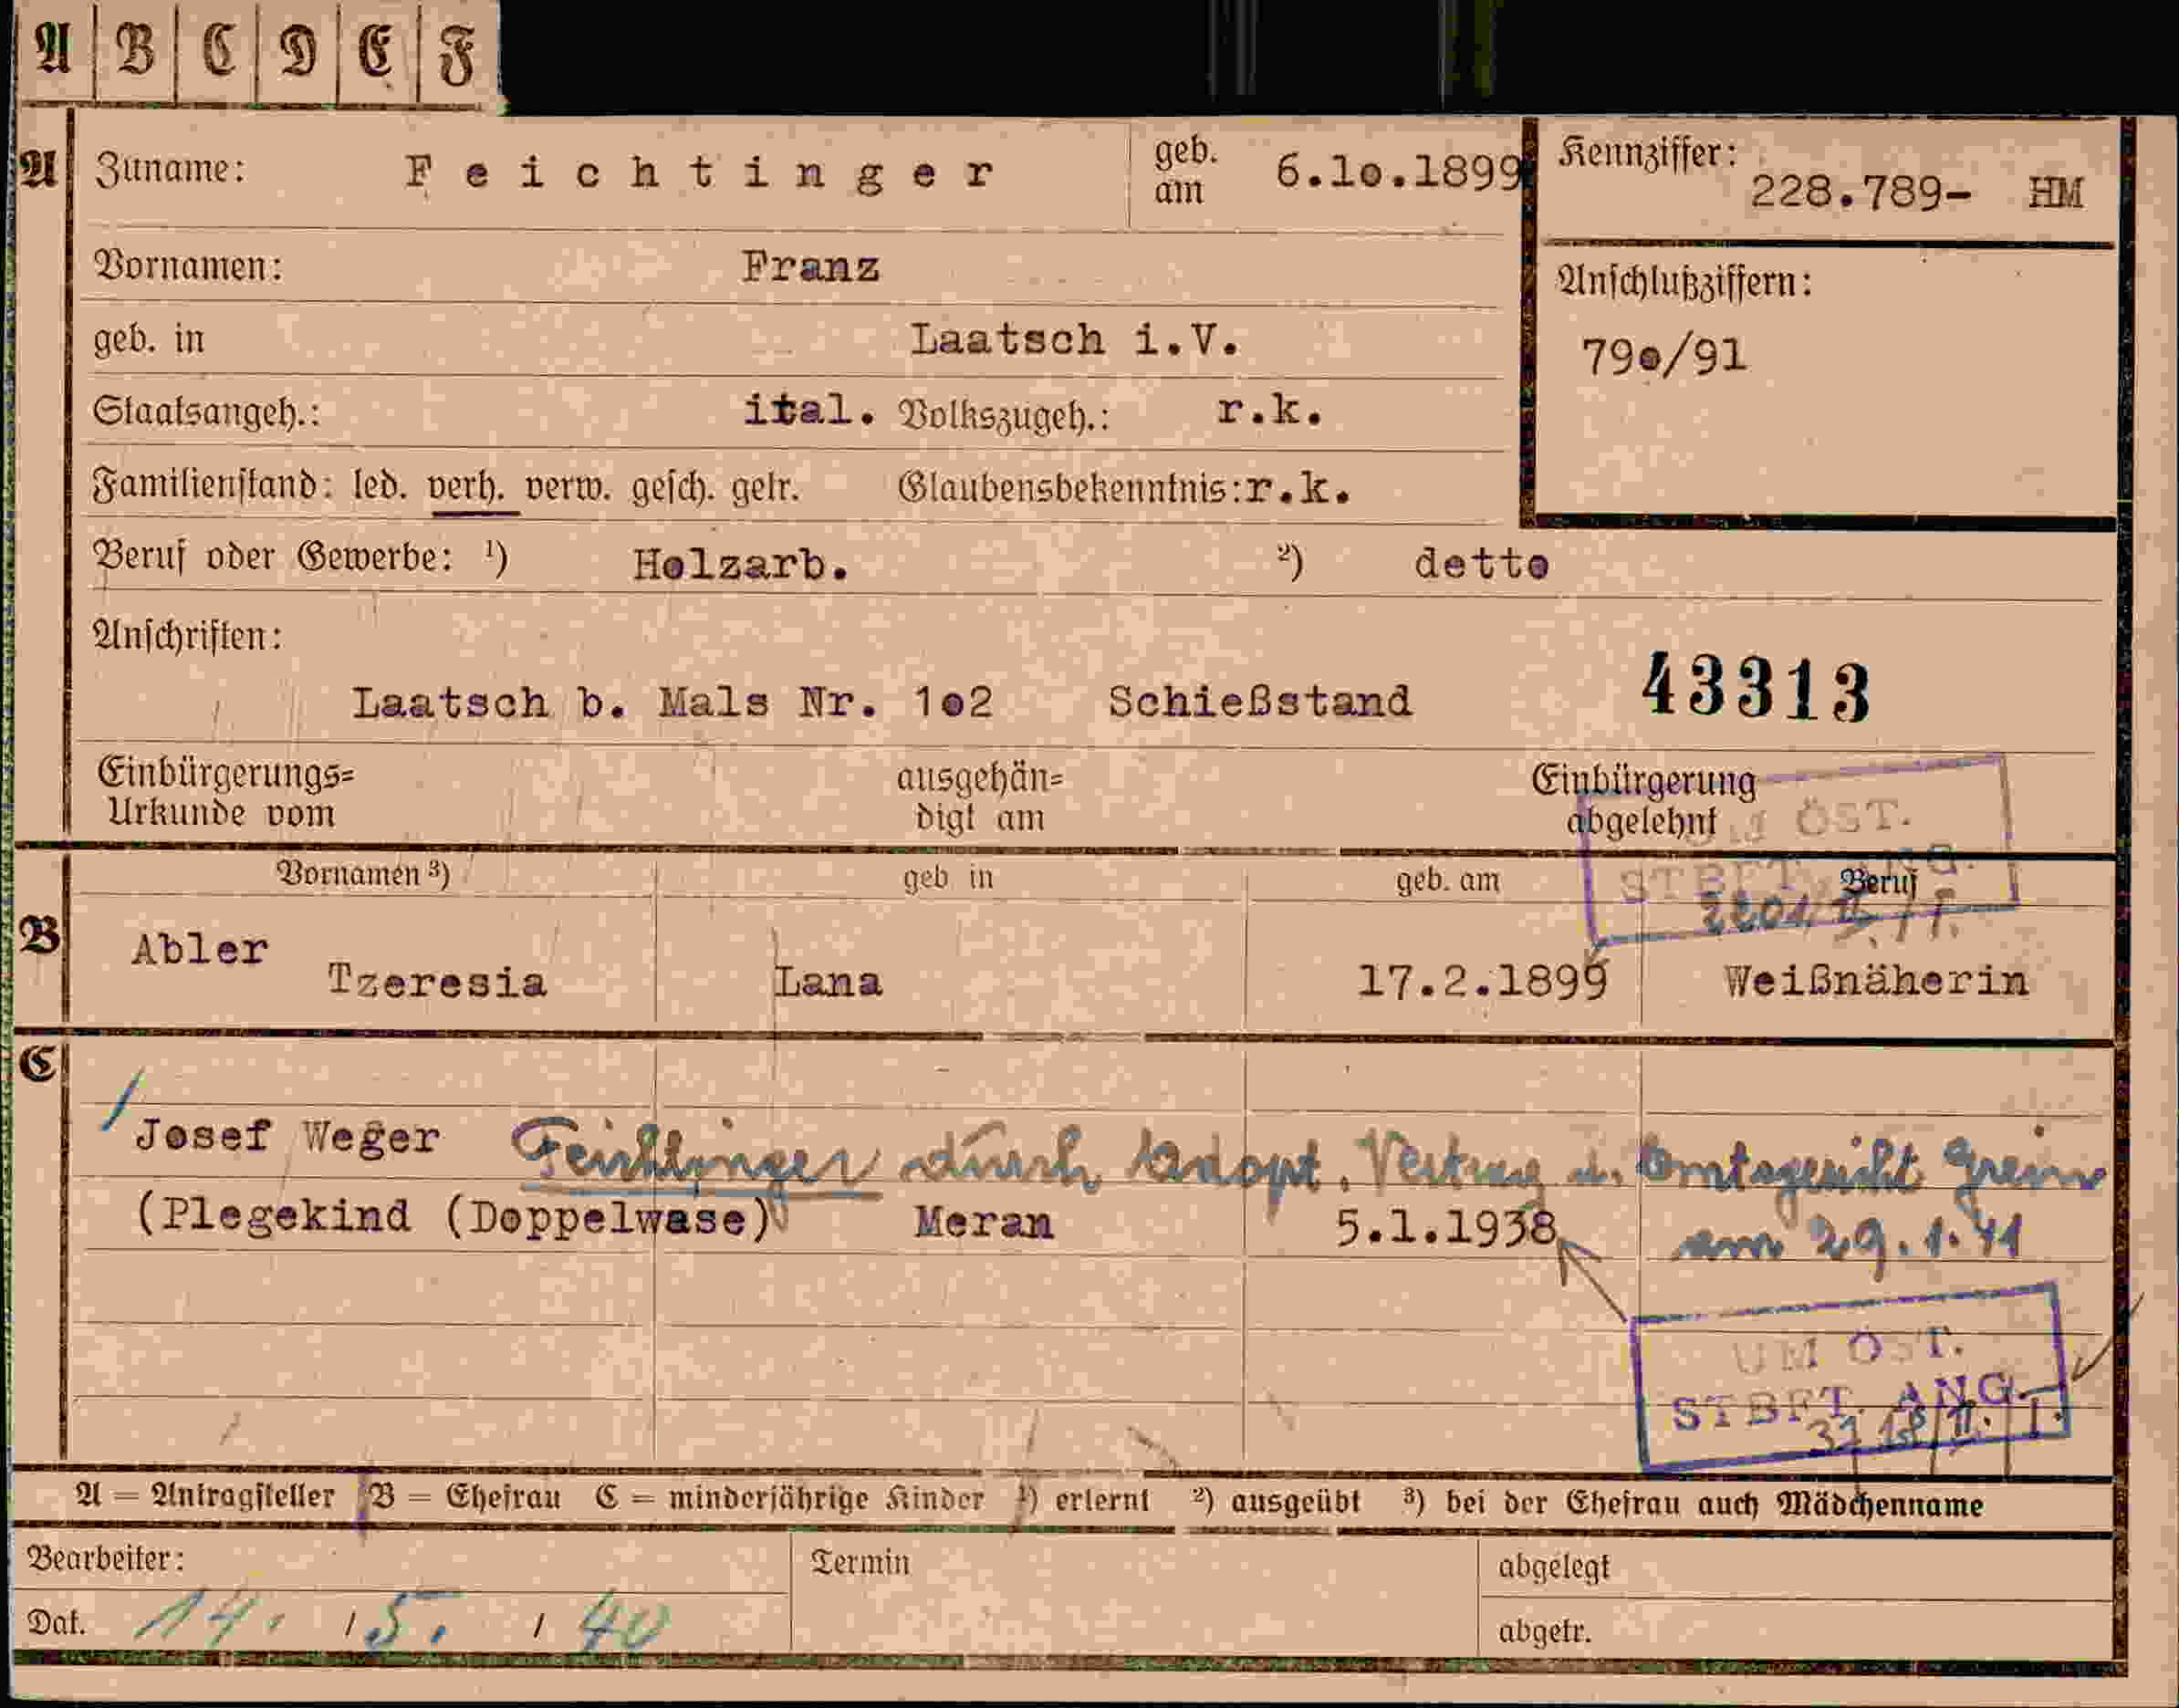 A B C D E F
A Zuname: Feichtinger geb. am 6.10.1899 Kennziffer: 228.789- HM
Vornamen: Franz Anschlußziffern:
geb. in Laatsch i.V. 790/91
Staatsangeh.: ital. Volkszugeh.: r.k.
Familienstand: led. verh. verw. gesch. getr. Glaubensbekenntnis: r.k.
Beruf oder Gewerbe: 1) Holzarb. 2) detto
Anschriften:
Laatsch b. Mals Nr. 102 Schießstand 43313
Einbürgerungs= ausgehän= Einbürgerung
Urkunde vom digt am abgelehnt
ÖST.
Vornamen 3) geb in geb. am Beruf
STBFT.
B Abler
Tzeresia Lana 17.2.1899 Weißnäherin
C
Josef Weger Feichtinger durch Adopt. Vertrag d. Amtsgericht Grein
(Plegekind (Doppelwase) Meran 5.1.1938 am 29.1.41
UM ÖST.
STBFT. ANG.
A = Antragsteller B = Ehefrau C = minderjährige Kinder 1) erlernt 2) ausgeübt 3) bei der Ehefrau auch Mädchenname
Bearbeiter: Termin abgelegt
Dat. 14. / 5. / 40 abgetr.